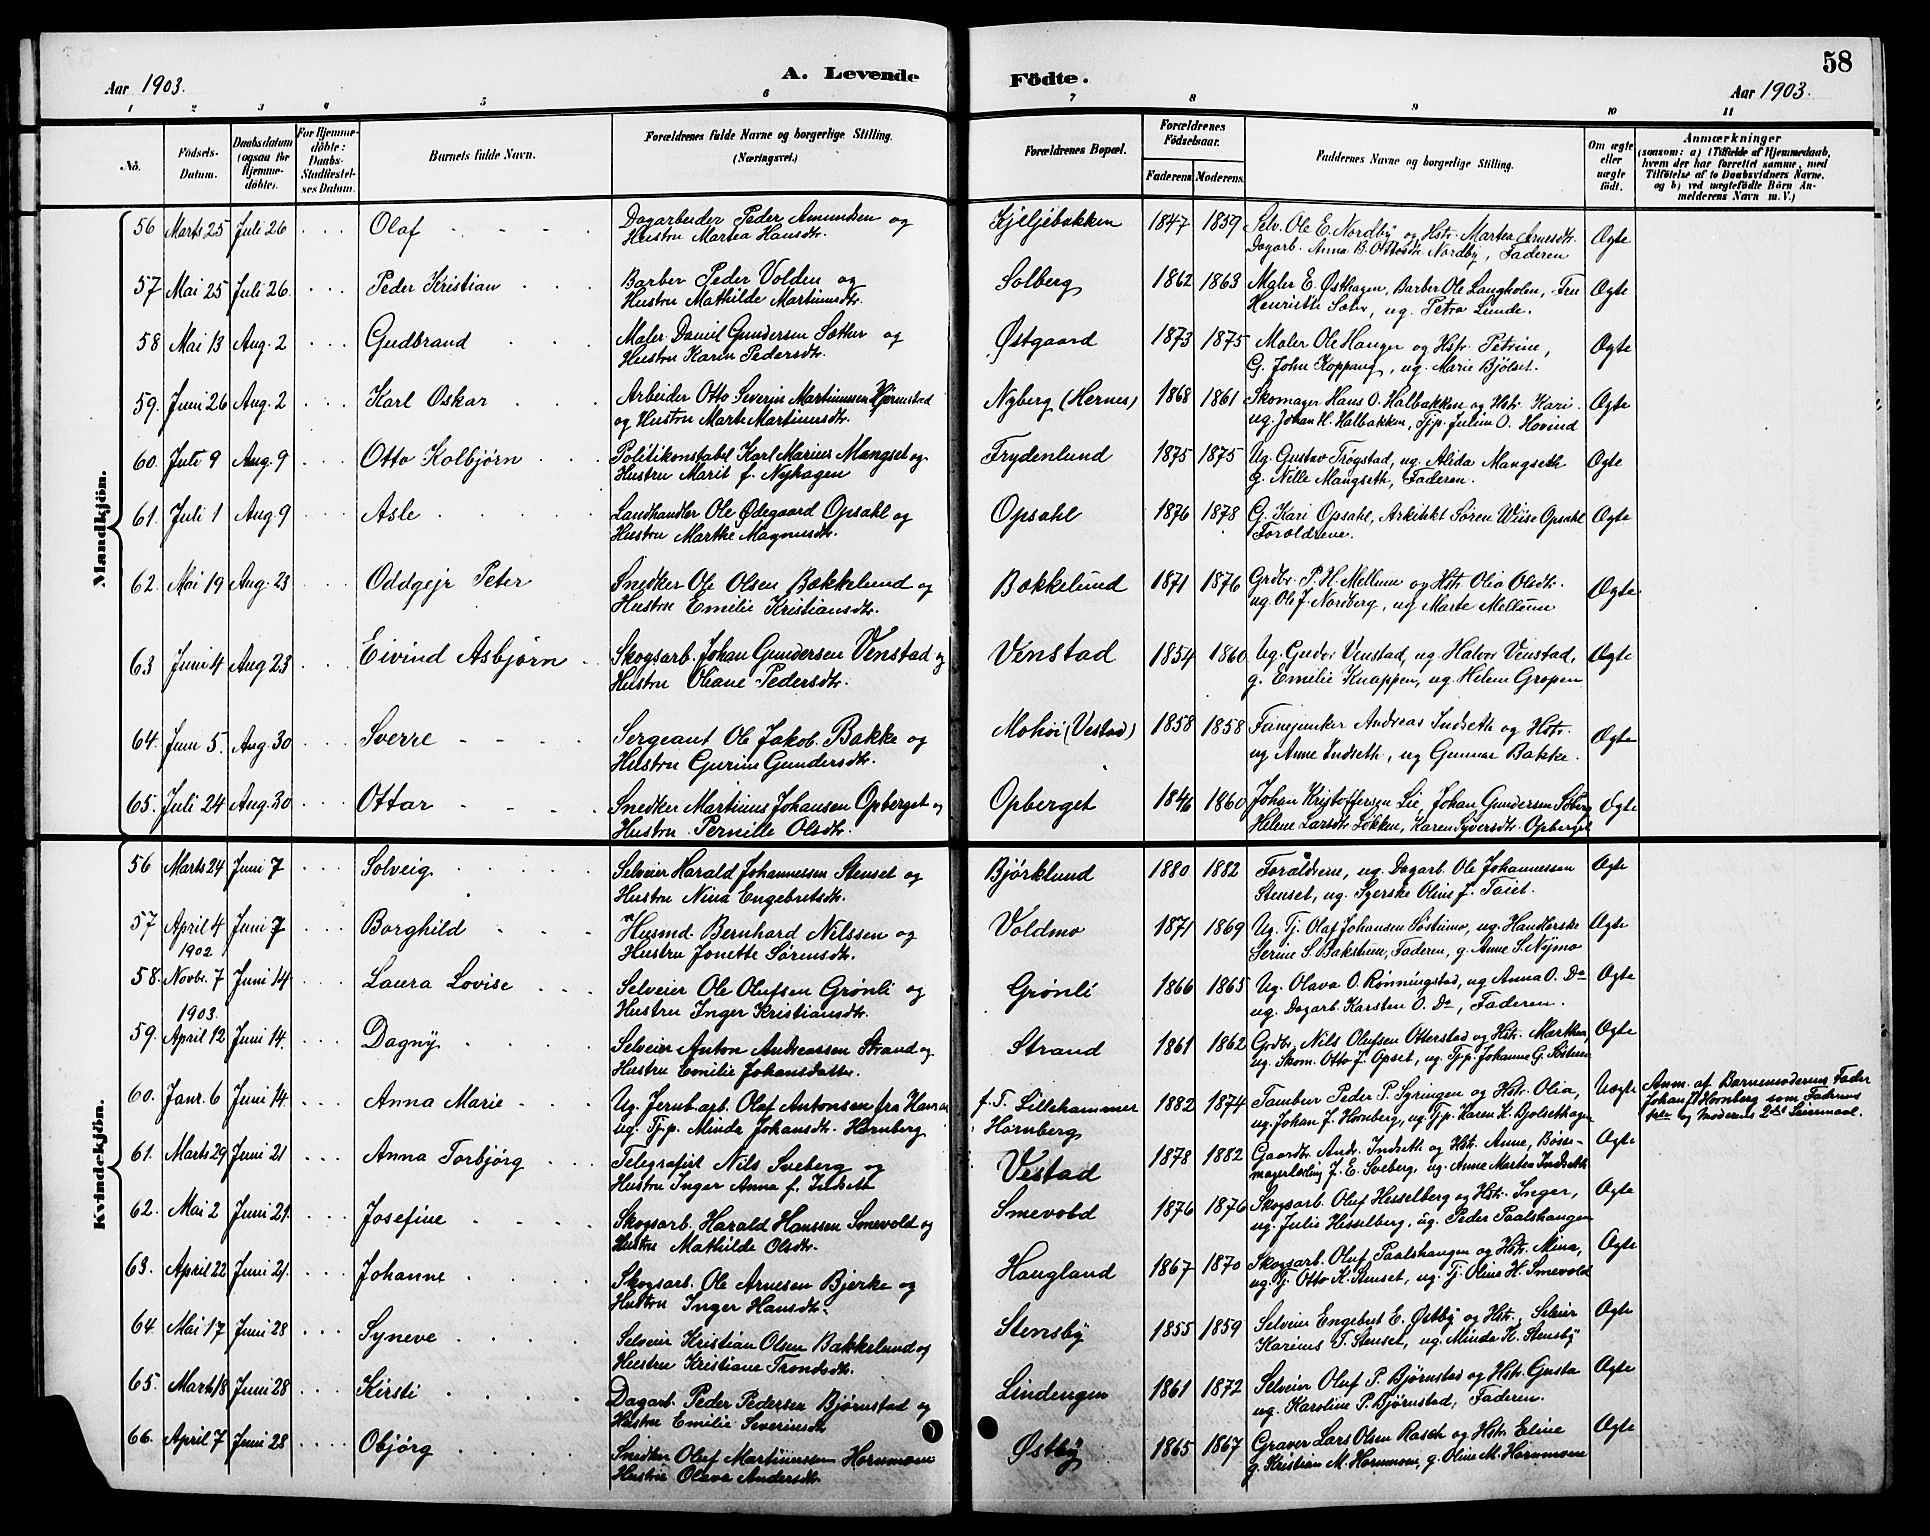 58
Aar 1903. A. Levende Födte. Aar 1903.
1 2 3 4 5 6 7 8 9 10 11
No. Födsels-Datum. Daabsdatum (ogsaa for Hjemmedöbte). For Hjemmedöbte: Daabs-Stadfæstelses Datum. Barnets fulde Navn. Forældrenes fulde Navne og borgerlige Stilling. (Næringsvei.) Forældrenes Bopæl. Forældrenes Födselsaar. Faderens Moderens. Faddernes Navne og borgerlige Stilling. Om ægte eller uægte födt. Anmærkninger (saasom: a) i Tilfælde af Hjemmedaab, hvem der har forrettet samme, med Tilföielse af to Daabsvidners Navne, og b) ved uægtefödte Börn Anmelderens Navn m. V.)
Mandkjön.
56 Marts 25 Juli 26 Olaf Dagarbeider Peder Amundsen og Kjeljebakken 1847 1859 Selv. Ole E. Nordby og Hstr. Martea Arnesdtr. Ægte
Hustru Martea Hansdtr. Dagarb. Anna B. Ottosdtr Nordby, Faderen
57 Mai 25 Juli 26 Peder Kristian Barber Peder Volden og Solberg 1862 1863 Maler E. Østhagen, Barber Ole Langholen, Fru Ægte
Hustru Mathilde Martinusdtr. Henriette Sæter, ug. Petra Lunde.
58 Mai 13 Aug. 2 Gudbrand Maler Daniel Gundersen Sæther og Østgaard 1873 1875 Maler Ole Hanger og Hstr. Petrine, Ægte
Hustru Karen Pedersdtr. G. John Koppang, ug. Marie Bjølset.
59. Juni 26 Aug. 2 Karl Oskar Arbeider Otto Severin Martinussen Hjørnstad Nyberg (Hernes) 1868 1861 Skomager Hans O. Halbakken og Hstr. Kari Ægte
og Hustru Marte Martinusdtr. ug. Johan H. Halbakken, Tjp. Juline O. Hovind
60. Juli 9 Aug. 9 Otto Kolbjørn Politikonstabel Karl Marius Mangset og Frydenlund 1875 1875 Ug. Gustav Trøgstad, ug. Alida Mangseth Ægte
Hustru Marit f. Nyhagen g. Nille Mangseth, Faderen.
61. Juli 1 Aug. 9 Asle Landhandler Ole Ødegaard Opsahl og Opsahl 1876 1878 G. Kari Opsahl, Arkitekt Søren Wiise Opsahl Ægte
Hustru Marthe Magnusdtr. Forældrene.
62. Mai 19 Aug. 23 Oddgejr Peter Snedker Ole Olsen Bakkelund og Bakkelund 1871 1876 Grdbr. P. H. Mellum og Hstr. Olia Olsdtr. Ægte
Hustru Emilie Kristiansdtr. ug. Ole J. Nordberg, ug Marte Mellum
63 Juni 4 Aug 23 Eivind Asbjørn Skogsarb. Johan Gundersen Venstad og Venstad 1854 1860 Ug. Gudbr Venstad, ug. Halvor Venstad, Ægte
Hustru Oleane Pedersdtr. g. Emilie Knappen, ug. Helene Gropen
64. Juni 5. Aug. 30 Sverre Sergeant Ole Jakob Bakke og Mohöi (Vestad) 1858 1858 Fanejunker Andreas Indseth og Hstr. Ægte
Hustru Gurine Gundersdtr. ug Anne Indseth, ug Gunnar Bakke.
65. Juli 24 Aug. 30 Ottar Snedker Martinus Johansen Opberget og Opberget 1846 1860 Johan Kristoffersen Lie, Johan Gundersen Ægte
Hustru Pernille Olsdtr. Helene Larsdtr Løkken, Karen Syversdtr. Opberget
Kvindekjön.
56 Marts 24 Juni 7 Solveig Selveier Harald Johannessen Stenset og Bjørklund 1880 1882 Forældrene, ug. Dagarb. Ole Johannessen Ægte
Hustru Nina Engebretsdtr. Stenset, ug. Syerske Oline J. Taiet.
57 April 4 Juni 7 Borghild Husmd. Bernhard Nilssen og Voldmo 1871 1869 Ug. Tj. Olaf Johansen Søstumo, ug. Handlerske Ægte
Hustru Jonette Sørensdtr. Serine S. Bakstuen, Faderen, g. Anne S. Nymo
1902
58. Novbr. 7 Juni 14 Laura Lovise Selveier Ole Olufsen Grønli og Grønli 1866 1865 Ug. Olava O. Rønningstad, ug Anna O. Do Ægte
Hustru Inger Kristiansdtr. ug. Dagarb Karsten O. Do, Faderen.
1903.
59. April 12 Juni 14. Dagny Selveier Anton Andreassen Strand og Strand 1861 1862 Grdbr. Nils Olufsen Otterstad og Hstr. Marthea, Ægte
Hustru Emilie Johansdatter. ug. Skom. Otto J. Opset, ug. Tjp. Johanne G.
60. Janr. 6 Juni 14 Anna Marie Ug. Jernb.arb. Olaf Antonsen fra Hamar f. T. Lillehammer 1882 1874 Tambur Peder P. Syringen og Hstr. Olia, Uægte Anm. af Barnemoderens Fader
ug. Tjp. Minda Johansdtr. Hornberg Hornberg ug. Johan J. Hornberg, ug. Tjp. Karen K. Bjolsethagen Johan P. Hornberg som Faderens
og Moderens 2det Leiermaal.
61. Marts 29 Juni 21 Anna Torbjørg Telegrafist Nils Sveberg og Vestad 1878 1882 Gaardbr. Andr. Indseth og Hstr. Anne, Bøsse- Ægte
Hustru Inger Anna f. Indseth magerlærling J. E. Sveberg, ug. Anne Martea Indseth
62. Mai 2 Juni 21. Josefine Skogsarb. Harald Hanssen Smevold og Smevold 1876 1876 Skogsarb. Oluf Hesselberg og Hstr. Inger, Ægte
Hustru Mathilde Olsdtr. ug. Julie Hesselberg, ug. Peder Paalshaugen
63. April 22 Juni 21. Johanne Skogsarb. Ole Arnesen Bjerke og Haugland 1867 1870 Skogsarb. Oluf Paalshaugen og Hstr. Mina, Ægte
Hustru Inger Hansdtr. ug. Tj. Otto K. Stenset, ug. Tj. Oline H. Smevold
64. Mai 17 Juni 28 Syneve Selveier Kristian Olsen Bakkelund og Stensby 1855 1859 Selveier Engebret E. Østby og Hstr., Seleier Ægte
Hustru Kristiane Trondsdtr. Karinus T. Stenset, ug. Minda K. Stensby
65. Marts 18 Juni 28 Kirsti Dagarb. Peder Pedersen Bjørnstad og Lindengen 1861 1872 Selveier Oluf P. Bjørnstad og Hstr. Gusta Ægte
Hustru Emilie Severinsdtr ug. Karoline P. Bjørnstad, Faderen.
66. April 7 Juni 28 Objörg Snedker Oluf Martinussen Hornmoen Østby 1865 1867 Graver Lars Olsen Rasch og Hstr. Eline Ægte
Hustru Olava Andersdtr g. Kristian M. Hornmoen, g. Oline M. Hornmoen